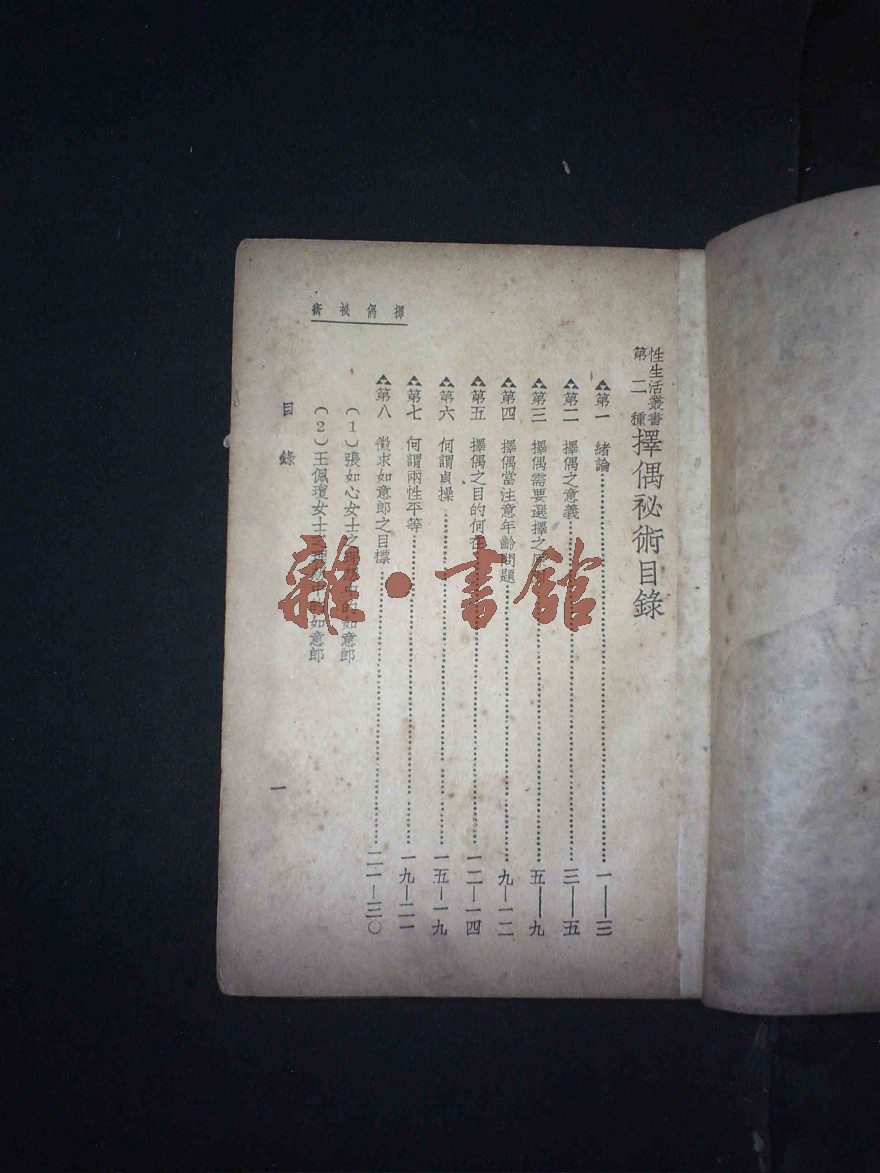 擇偶祕術
性生活叢書
第二種
擇偶祕術目錄
第一 緒論 一—三
第二 擇偶之意義 三—五
第三 擇偶需要選擇之 五—九
第四 擇偶當注意年齡問題 九—一二
第五 擇偶之目的何在 一二—一四
第六 何謂貞操 一五—一九
第七 何謂兩性平等 一九—二一
第八 徵求如意郎之目標 二一—三〇
(1)張如心女士之 中的如意郎
(2)王佩瓊女士之 中的如意郎
目錄
一
雜·書館